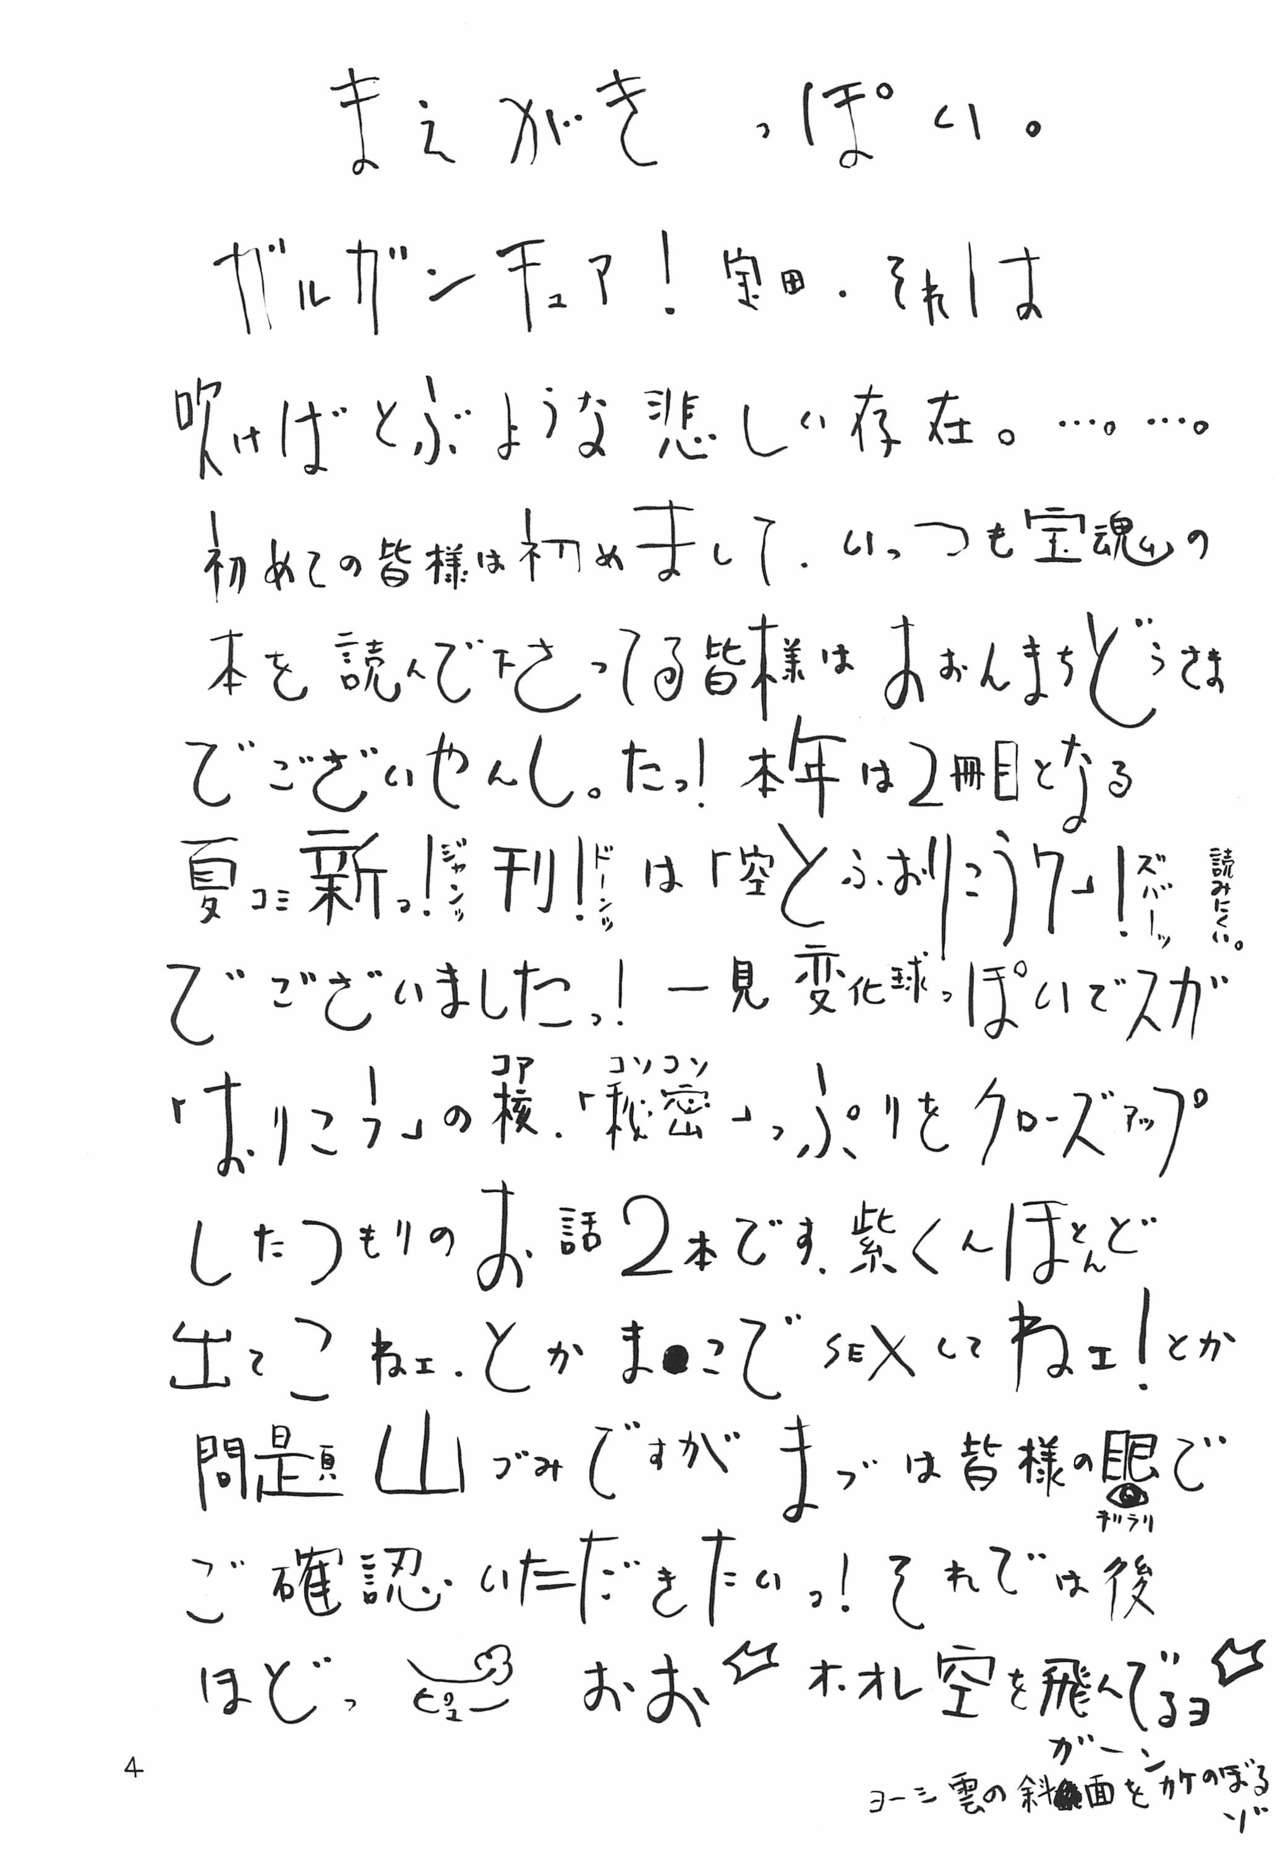 まえがきっぽい。
ガルガンチュア！宝田．それは
吹けばとぶような悲しい存在。…。…。
初めての皆様は初めまして．いっつも宝魂の
本を読んで下さってる皆様はおおんまちどうさま
でございやんし。たっ！本年は2冊目となる
夏コミ新っ！ジャンッ刊！ドーンッは「空とぶおりこうワ」！ズバーッ
読みにくい。
でございましたっ！一見変化球っぽいでスガ
コア コソコソ
「おりこう」の核．「秘密」っぷりをクローズアップ
したつもりのお話2本です．紫くんほとんど
出てこねェ．とかま●こでSEXしてねェ！とか
問題山づみですがまづは皆様の眼で
ギラリ
ご確認いただきたいっ！それでは後
ほどっ ピュー おお オ．オレ空を飛んでるヨ
ガーン
ヨーシ雲の斜面をカケのぼるゾ
4